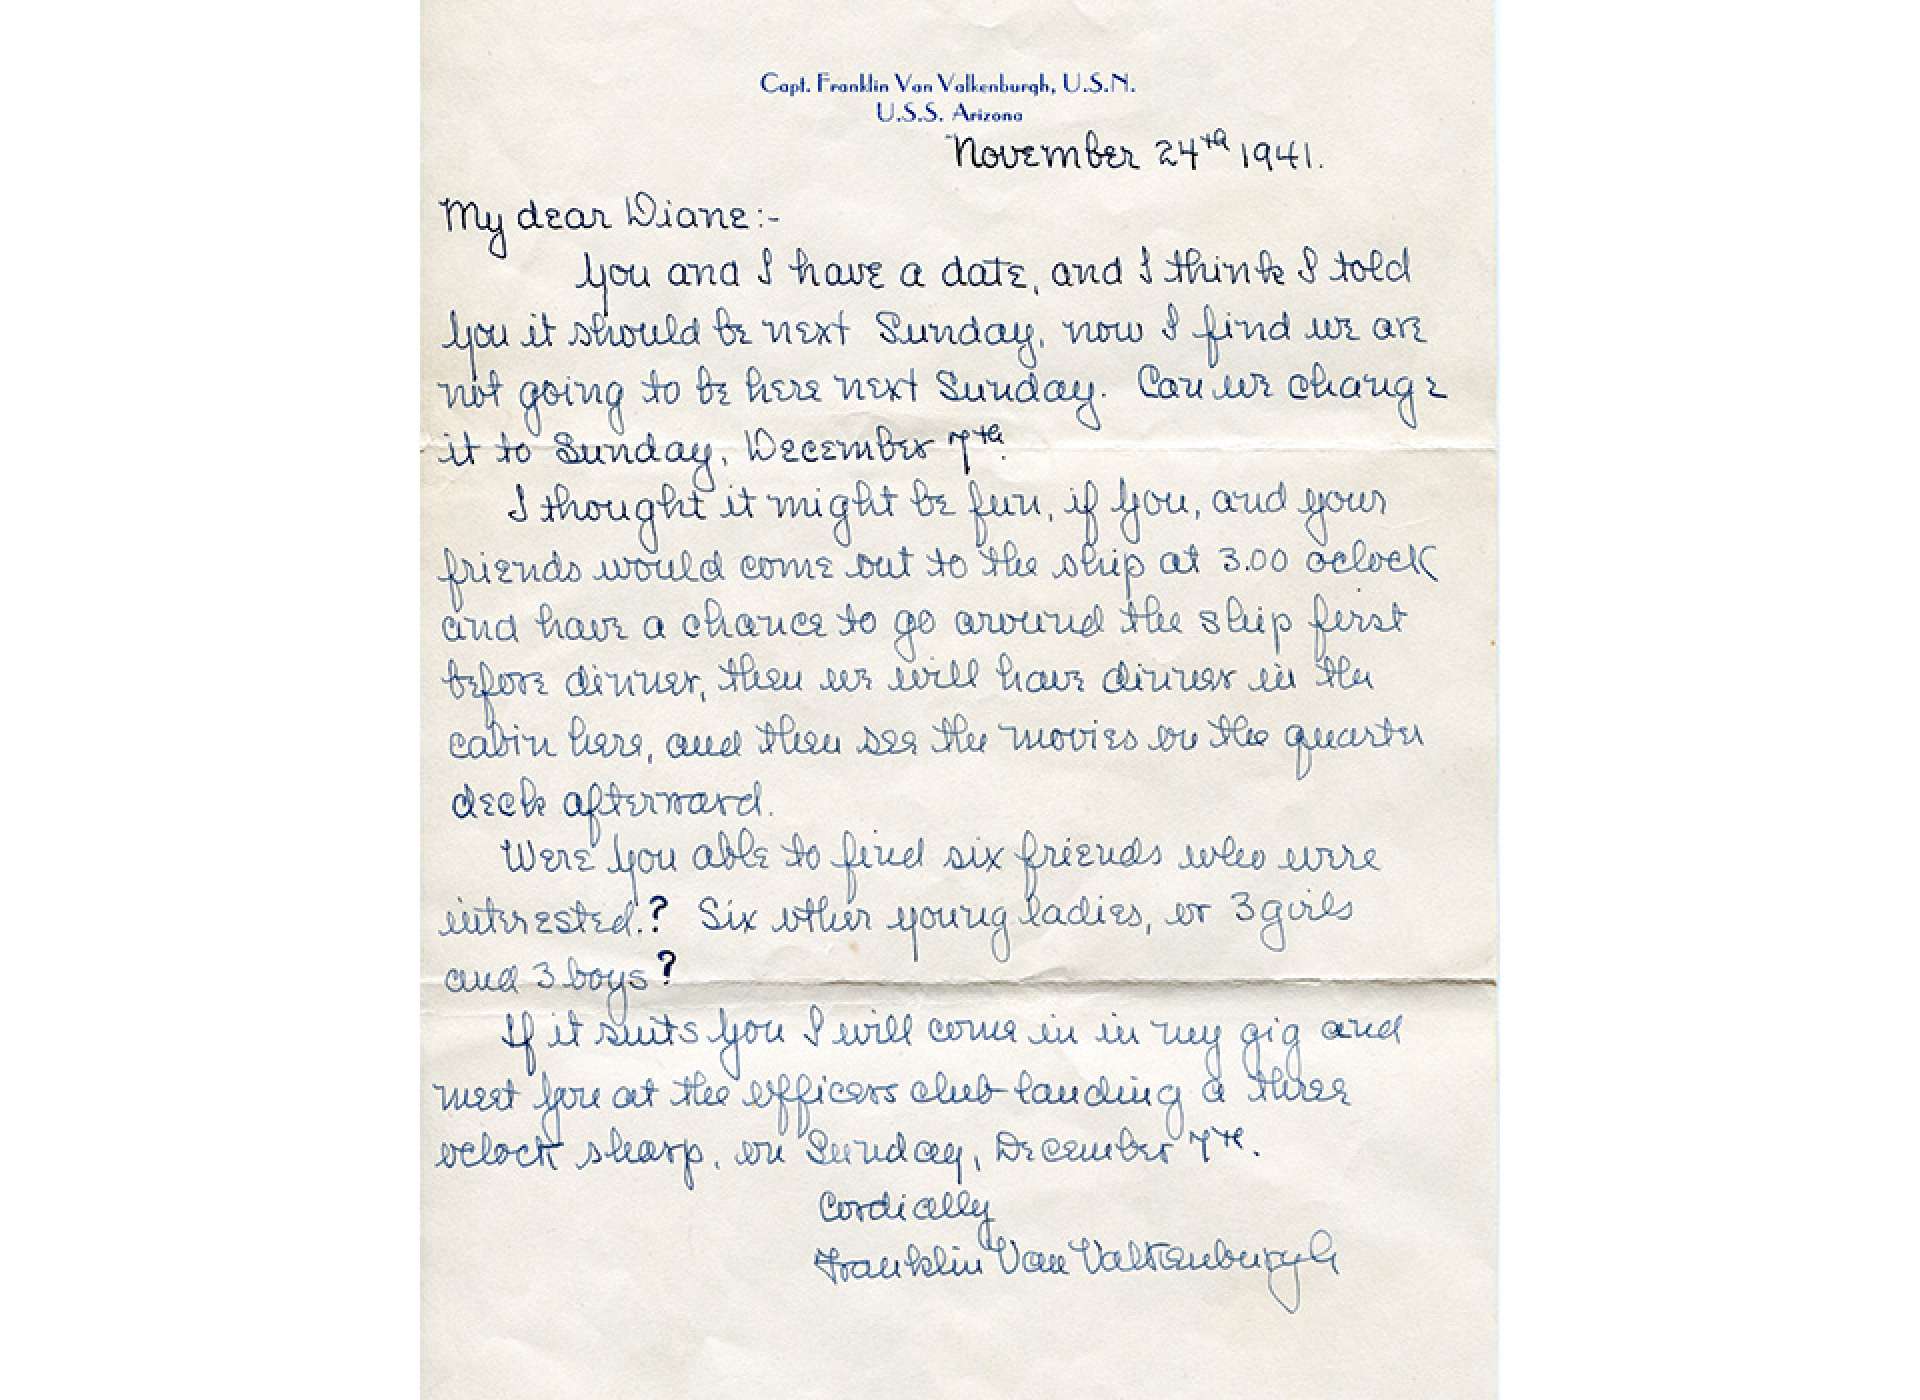 Capt. Franklin Van Valkenburgh, U.S.N.
U.S.S. Arizona
November 24th 1941.
My dear Diane:-
You and I have a date, and I think I told
you it should be next Sunday, now I find we are
not going to be here next Sunday. Can we change
it to Sunday, December 7th.
I thought it might be fun, if you, and your
friends would come out to the ship at 3.00 oclock
and have a chance to go around the ship first
before dinner, then we will have dinner in the
cabin here, and then see the movies on the quarter
deck afterward.
Were you able to find six friends who were
interested.? Six other young ladies, or 3 girls
and 3 boys?
If it suits you I will come in in my gig and
meet you at the officers club landing a three
oclock sharp, on Sunday, December 7th.
Cordially
Franklin Van Valkenburgh